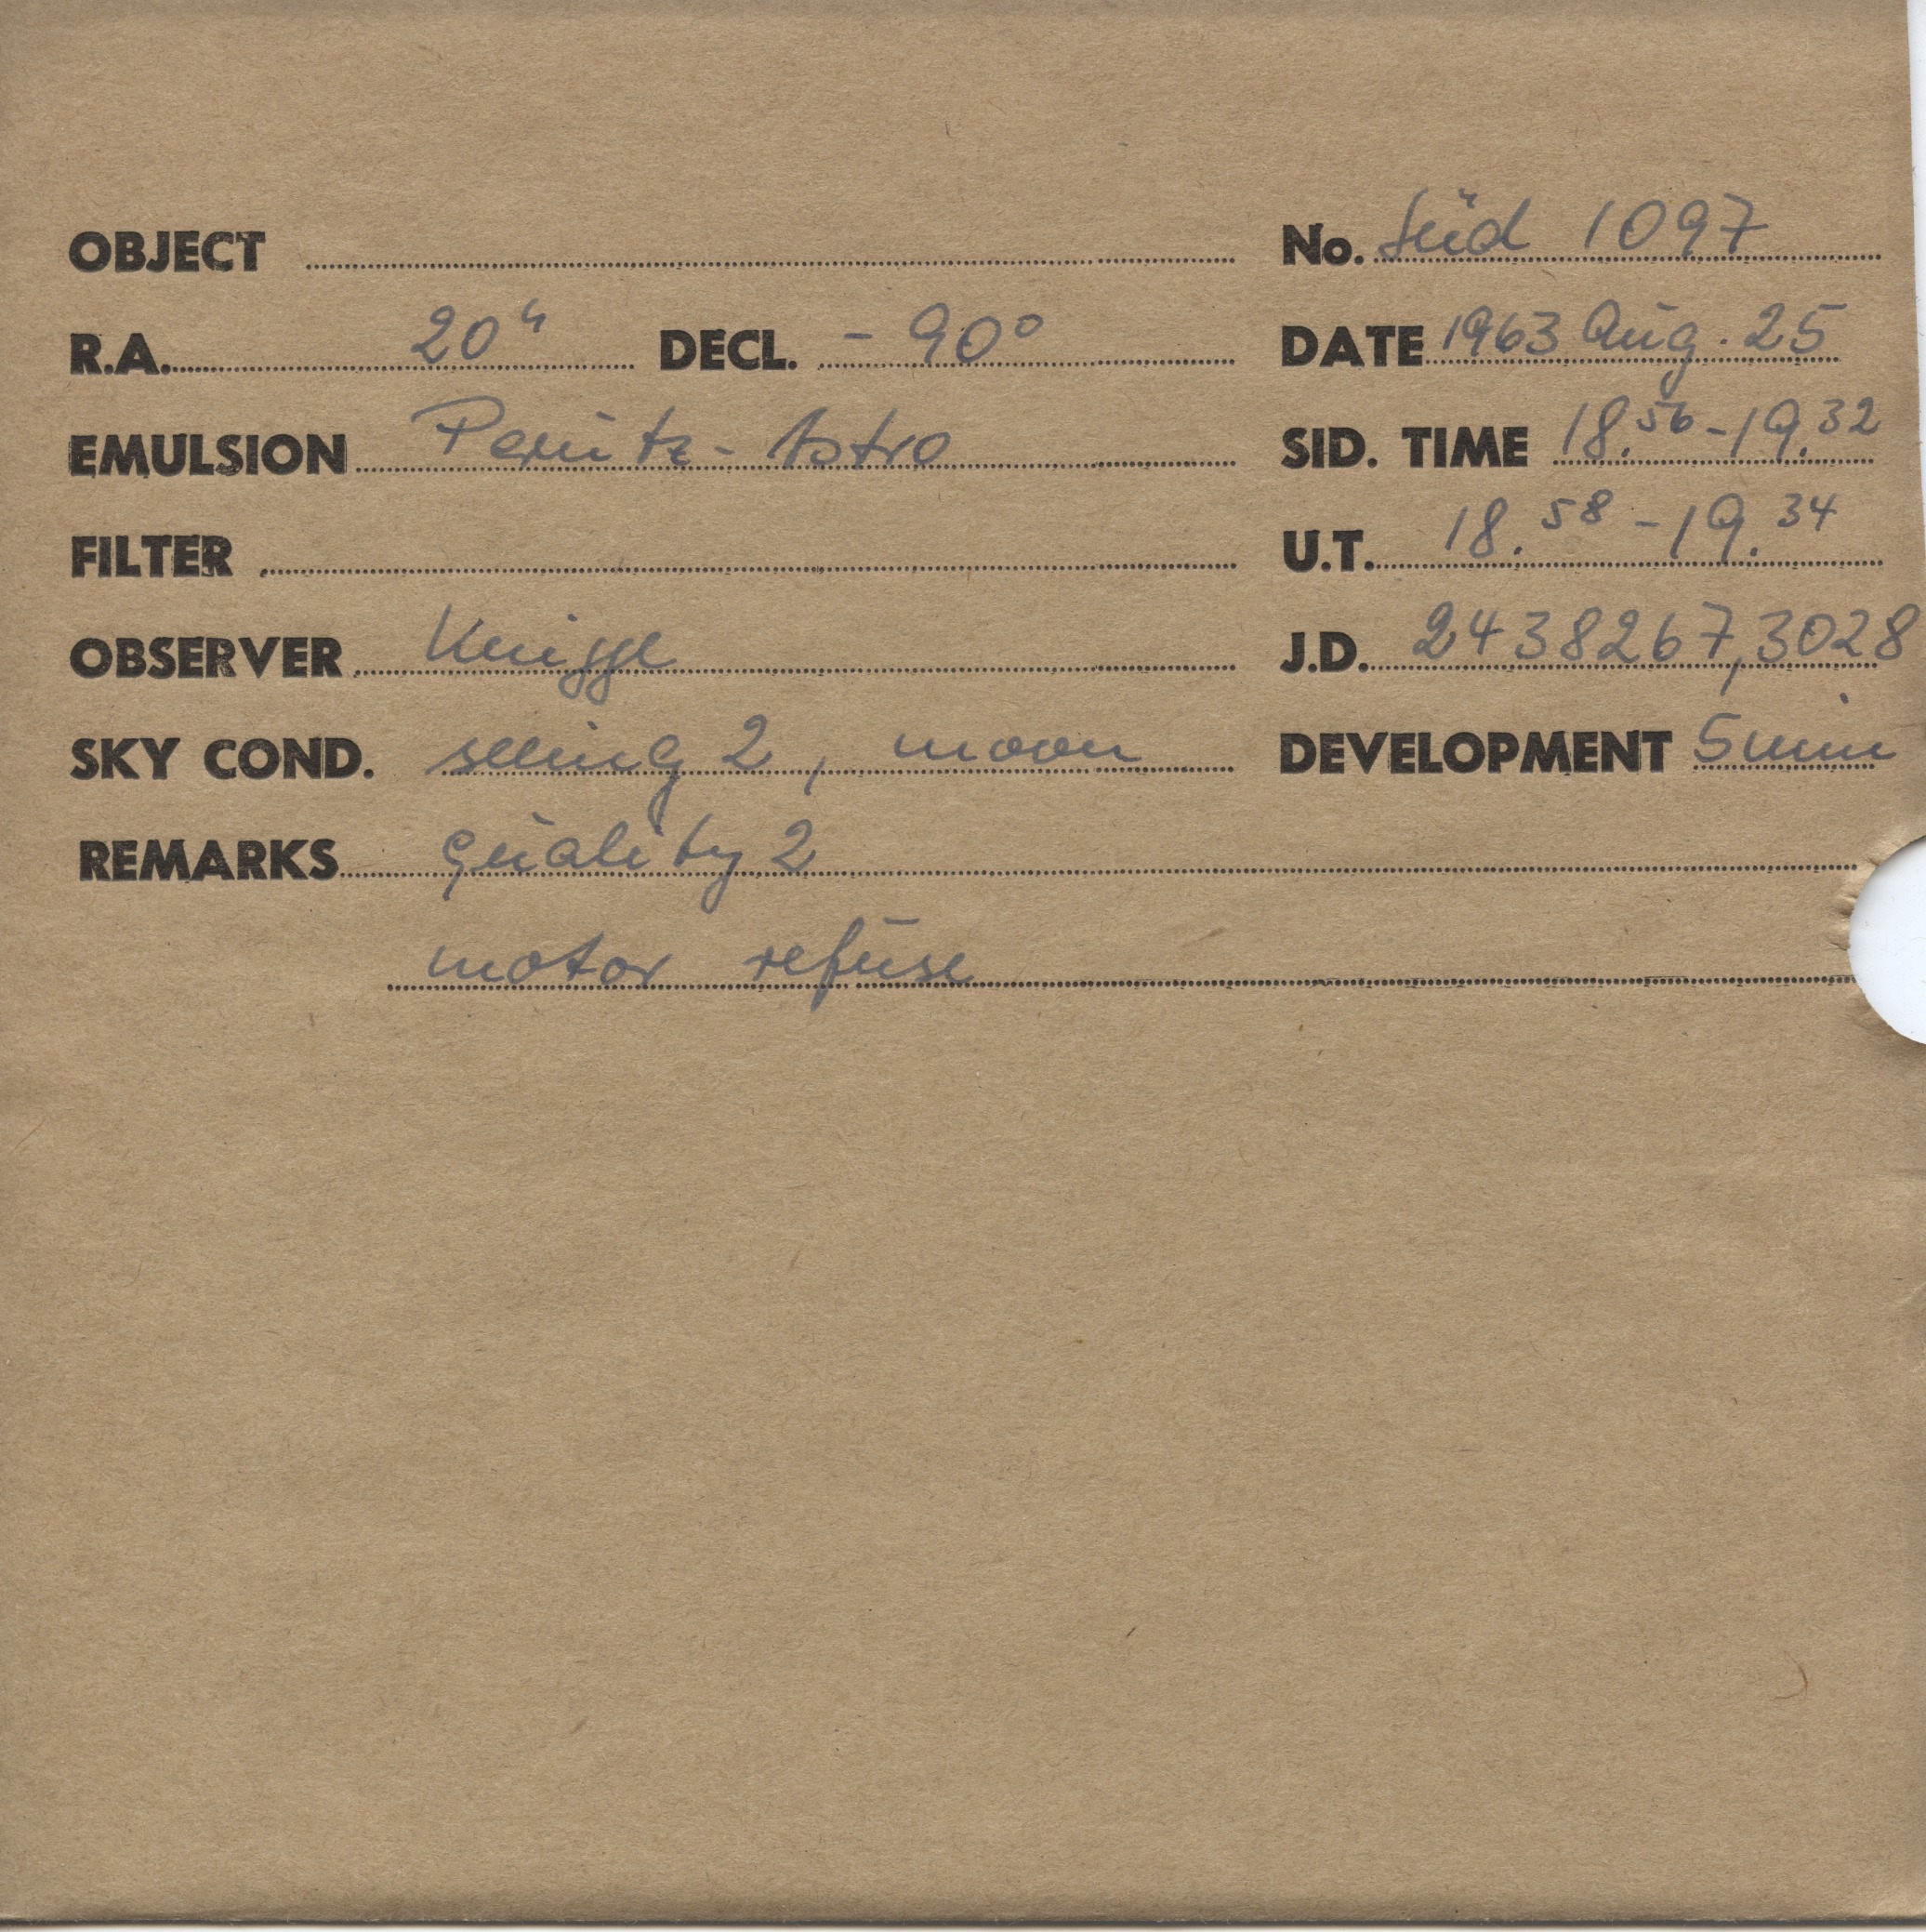 OBJECT No. Süd 1097
R.A. 20h DECL. - 90° DATE 1963 Aug. 25
EMULSION Perutz - Astro SID. TIME 18.56 - 19.32
FILTER U.T. 18.58 - 19.34
OBSERVER Knigge J.D. 2438267,3028
SKY COND. seeing 2, moon DEVELOPMENT 5 min
REMARKS quality 2
motor refuse